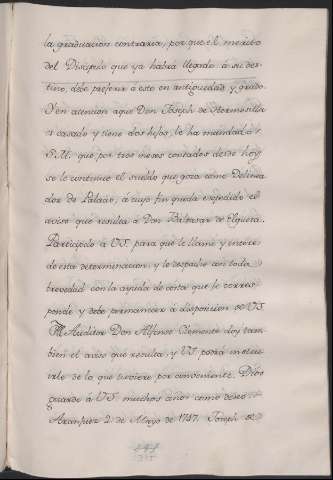 la graduacion contraria, por que el merito
del Discipulo que ya habrá llegado á su des-
tino, debe preferir á este en antiguedad y grado.
Y en atencion aque Don Joseph de Hermosilla
es casado y tiene dos hijos, le ha mandado
S.M. que por tres meses contados desde hoy
se le continue el sueldo que goza como Delinea
dor de Palacio, á cuyo fin queda expedido el
aviso que resulta á Don Baltasar de Elgueta.
Participolo á VS. para que le llame y entere
de esta determinacion, y le despache con toda
brevedad con la ayuda de costa que le corres-
ponde y debe permanecer á disposicion de VS.
Al Auditor Don Alfonso Clemente doy tam-
bien el aviso que resulta, y VS. podrá instru-
irle de lo que tuviere por conveniente. Dios
guarde á VS. muchos años como deseo.
Aranjuez 2 de Mayo de 1747. Joseph de